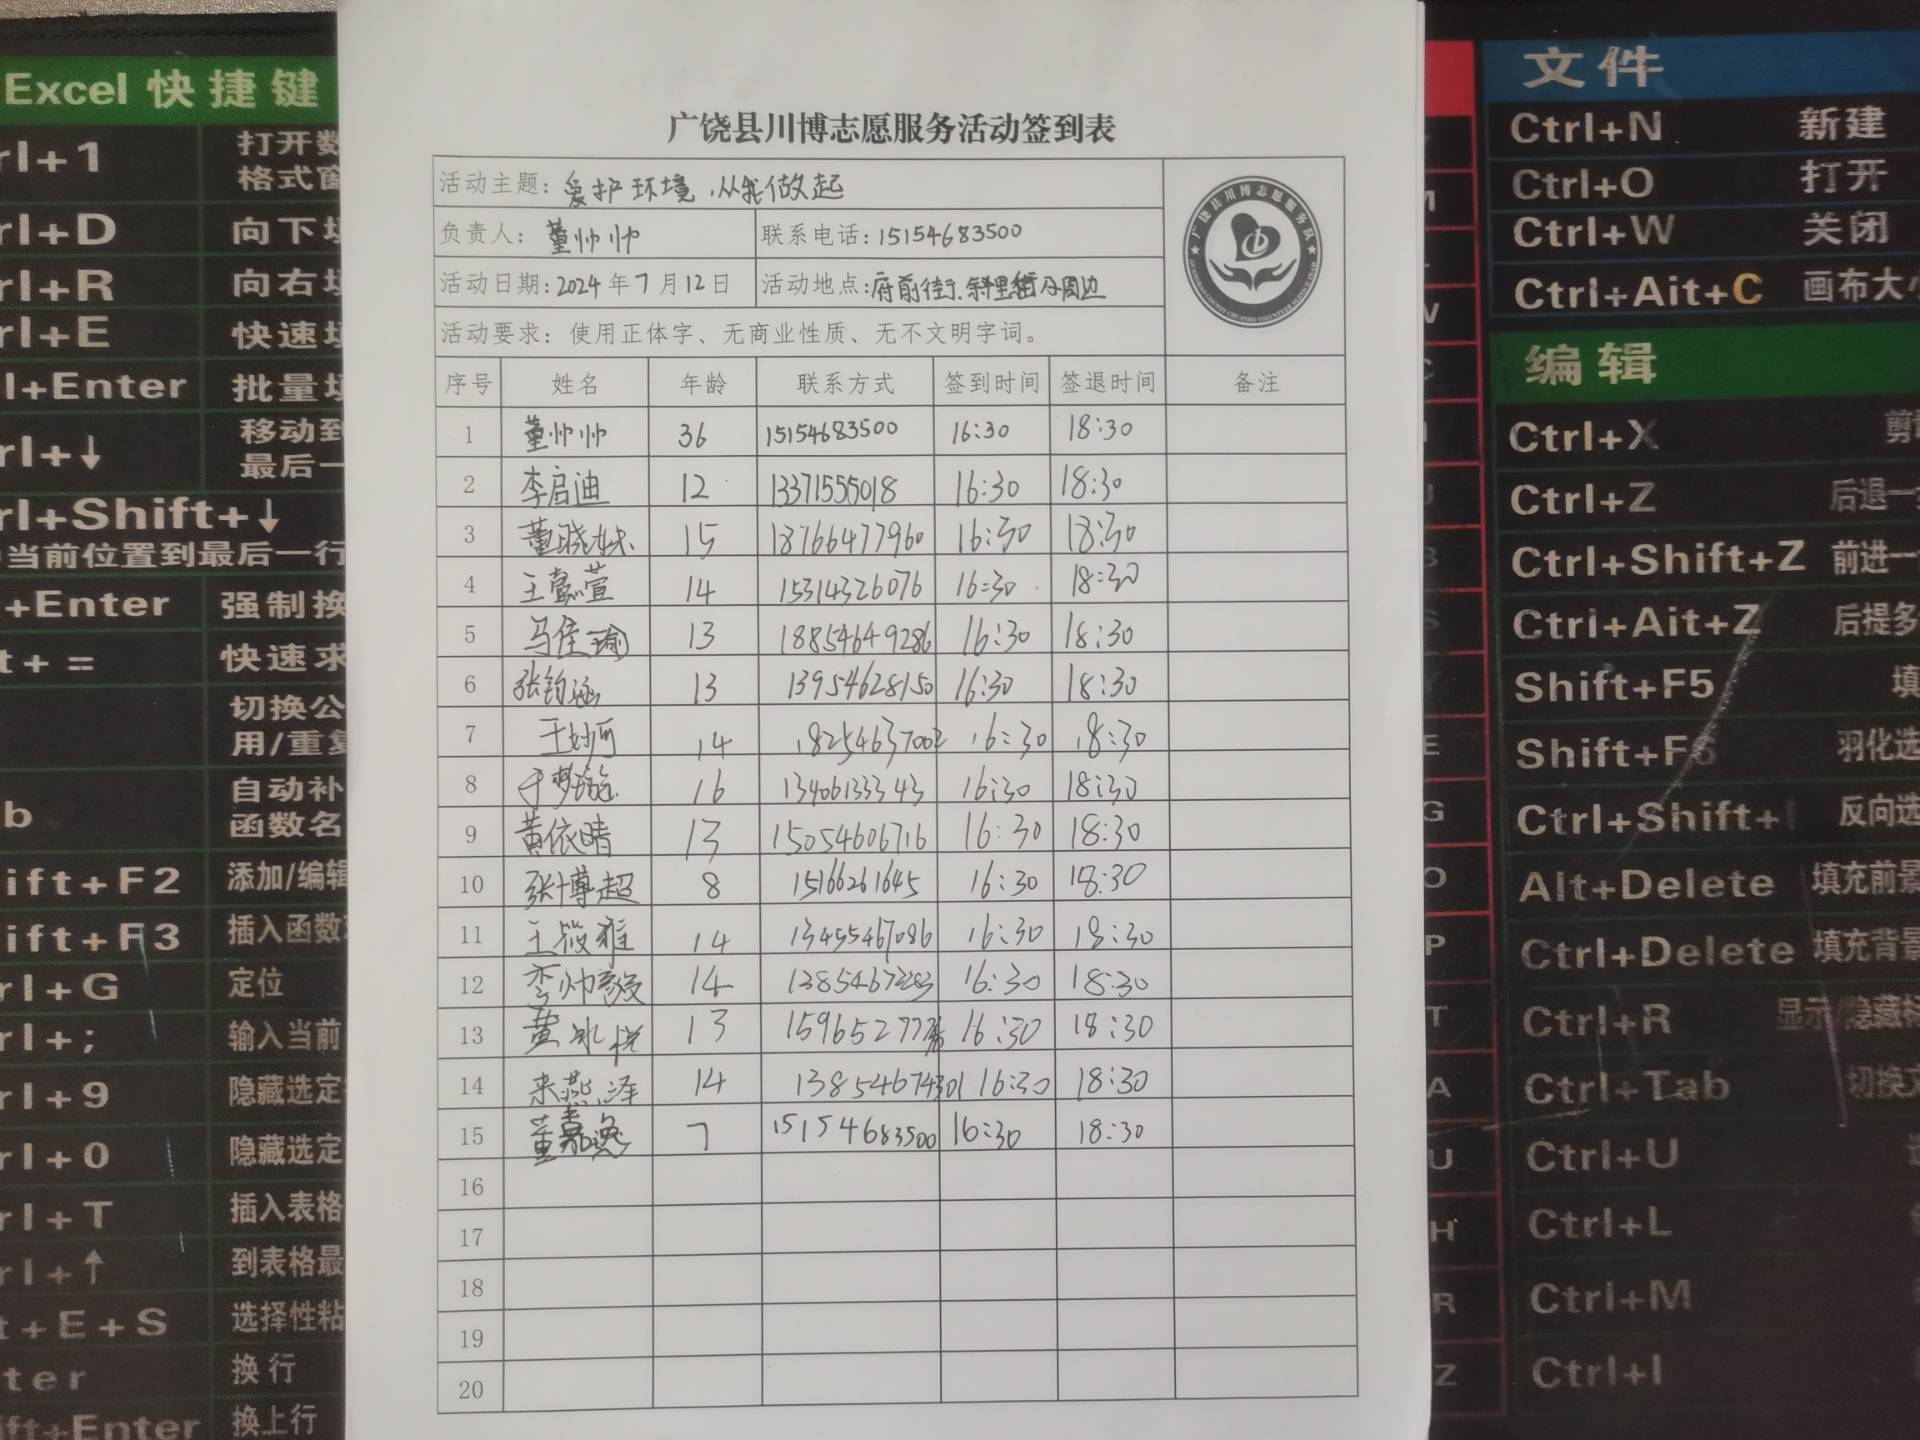 广饶县川博志愿服务活动签到表
活动主题: 爱护环境,从我做起
负责人: 董帅帅 联系电话: 15154683500
活动日期: 2024年7月12日 活动地点: 府前街、斜里街及周边
活动要求: 使用正体字、无商业性质、无不文明字词。
广饶县川博志愿服务队
序号 姓名 年龄 联系方式 签到时间 签退时间 备注
1 董帅帅 36 15154683500 16:30 18:30
2 李启迪 12 13371555018 16:30 18:30
3 董晓姝 15 18766477960 16:30 18:30
4 王嘉萱 14 15314326076 16:30 18:30
5 马佳瑜 13 18854649286 16:30 18:30
6 张钧涵 13 13954628150 16:30 18:30
7 王妙可 14 18254637002 16:30 18:30
8 于梦璇 16 13406133343 16:30 18:30
9 黄依晴 13 15054606716 16:30 18:30
10 张博超 8 15166261645 16:30 18:30
11 王筱雅 14 13455467086 16:30 18:30
12 李帅毅 14 16:30 18:30
13 黄冰悦 13 16:30 18:30
14 来燕泽 14 13854674301 16:30 18:30
15 董嘉逸 7 15154683500 16:30 18:30
16
17
18
19
20
Excel 快捷键
rl+1 打开数
格式窗
rl+D 向下填
rl+R 向右填
rl+E 快速填
l+Enter 批量填
rl+↓ 移动到
最后一
rl+Shift+↓
当前位置到最后一行
+Enter 强制换
t+= 快速求
切换公
用/重复
b 自动补
函数名
ift+F2 添加/编辑
ift+F3 插入函数
rl+G 定位
rl+; 输入当前
rl+9 隐藏选定
rl+0 隐藏选定
rl+T 插入表格
rl+↑ 到表格最
t+E+S 选择性粘
ter 换行
ift+Enter 换上行
文件
Ctrl+N 新建
Ctrl+O 打开
Ctrl+W 关闭
Ctrl+Ait+C 画布大小
编辑
Ctrl+X 剪
Ctrl+Z 后退一
Ctrl+Shift+Z 前进一
Ctri+Ait+Z 后提多
Shift+F5 填
Shift+F6 羽化选
Ctrl+Shift+I 反向选
Alt+Delete 填充前景
Ctrl+Delete 填充背景
Ctrl+R 显示/隐藏标
Ctrl+Tab 切换文
Ctrl+U
Ctrl+L
Ctrl+M
Ctrl+I